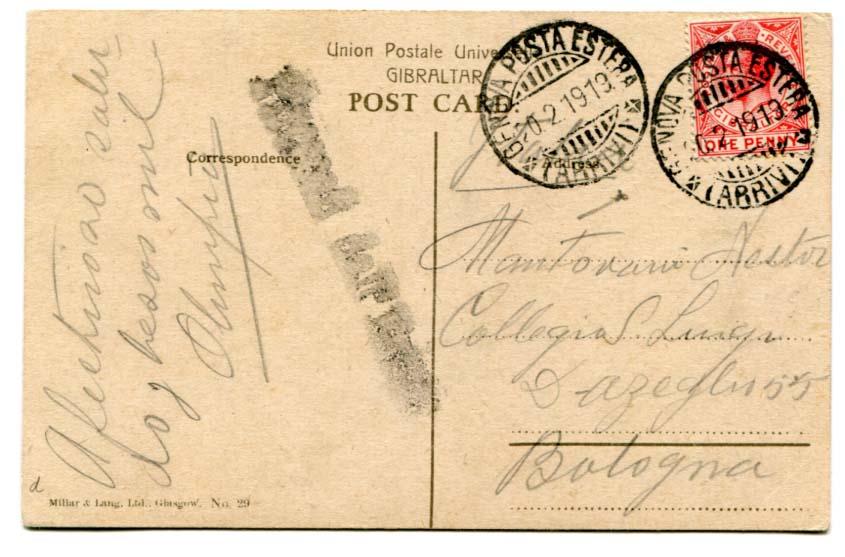 Union Postale Unive
GIBRALTAR
POST CARD.
Correspondence
Address
GENOVA POSTA ESTERA
20.2.1913
(ARRIVI)
GENOVA POSTA ESTERA
20.2.1913
(ARRIVI)
REV
GIB
ONE PENNY
Afectuoso salu
do y besos mil
Olimpia
Mantovani Nestor
Collegio S. Luigi
D'azeglio 55
Bologna
Millar & Lang, Ltd., Glasgow. No. 29